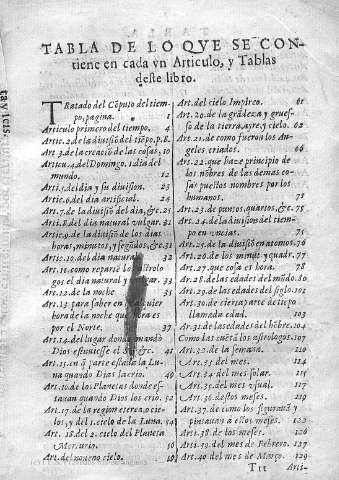 TABLA DE LO QVE SE CON-
tiene en cada vn Articulo, y Tablas
deste libro.
TRatado del Cõputo del tiem-
po, pagina. 1
Articulo primero del tiempo. 4
Arti.2.de la diuisiõ del tiẽpo,p.8
Arti.3.de la creaciõ de las cosas.10
Artic.4.del Domingo.1.dia del
mundo. 12
Arti.5.del dia y su diuision. 23
Arti.6.del dia artificial. 24
Art.7.de la diuisiõ del dia,&c.25
Art.8.del dia natural vulgar.31
Artic.9.de la diuisiõ de los dias
horas,minutos,y segũdos,&c.31
Artic.10.del dia natural 32
Art.11.como reparte los
gos el dia natural y 33
Art.12.de la noche 35
Art.13.para saber en
hora de la noche que es
por el Norte. 37
Art.14.del lugar donde
Dios estuuiesse el 41
Art.15.en q̃ parte estaua la Lu-
na quando Dios la crio. 40
Art.16.de los Planetas donde es-
tauan quando Dios los crio.52
Art.17.de la region eterea,o cie-
los,y del 1.cielo de la Luna. 54
Art.18.del 2.cielo del Planeta
Mercurio.
Art.del noueno cielo. 59
Art.del cielo Impireo. 61
Art.20.de la grãdeza y grues-
so de la tierra,ayre,y cielo. 62
Art.21.de como fueron los An-
geles criados. 66
Art.22.que haze principio de
los nõbres de las demas co-
sas puestos nombres por los
humanos. 78
Art.23.de puntos,quartos,&c.75
Art.24.de la diuision del tiem-
po en vncias. 75
Art.25.de la diuisiõ en atomos 76
Art.26.de los minut.y quadr.77
Art.27.que cosa es hora. 78
Art.28.de las edades del mũdo.80
Art.29.de las edades del siglo.101
Art.30.de cierta arte de tiẽpo
llamada edad. 103
Ar.31.de las edades del hõbre.104
Como las cuẽtã los astrologos.107
Artic.32.de la semana. 110
Artic.33.del mes. 114
Art.34.del mes solar. 115
Art.35.del mes vsual. 117
Art.36.destos meses. 119
Art.37.de como los figurauã y
pintauan a estos meses. 120
Art.38.de los meses. 126
Art.39.del mes de Febrero. 127
Art.40.del mes de Março. 129
Ttt Arti-